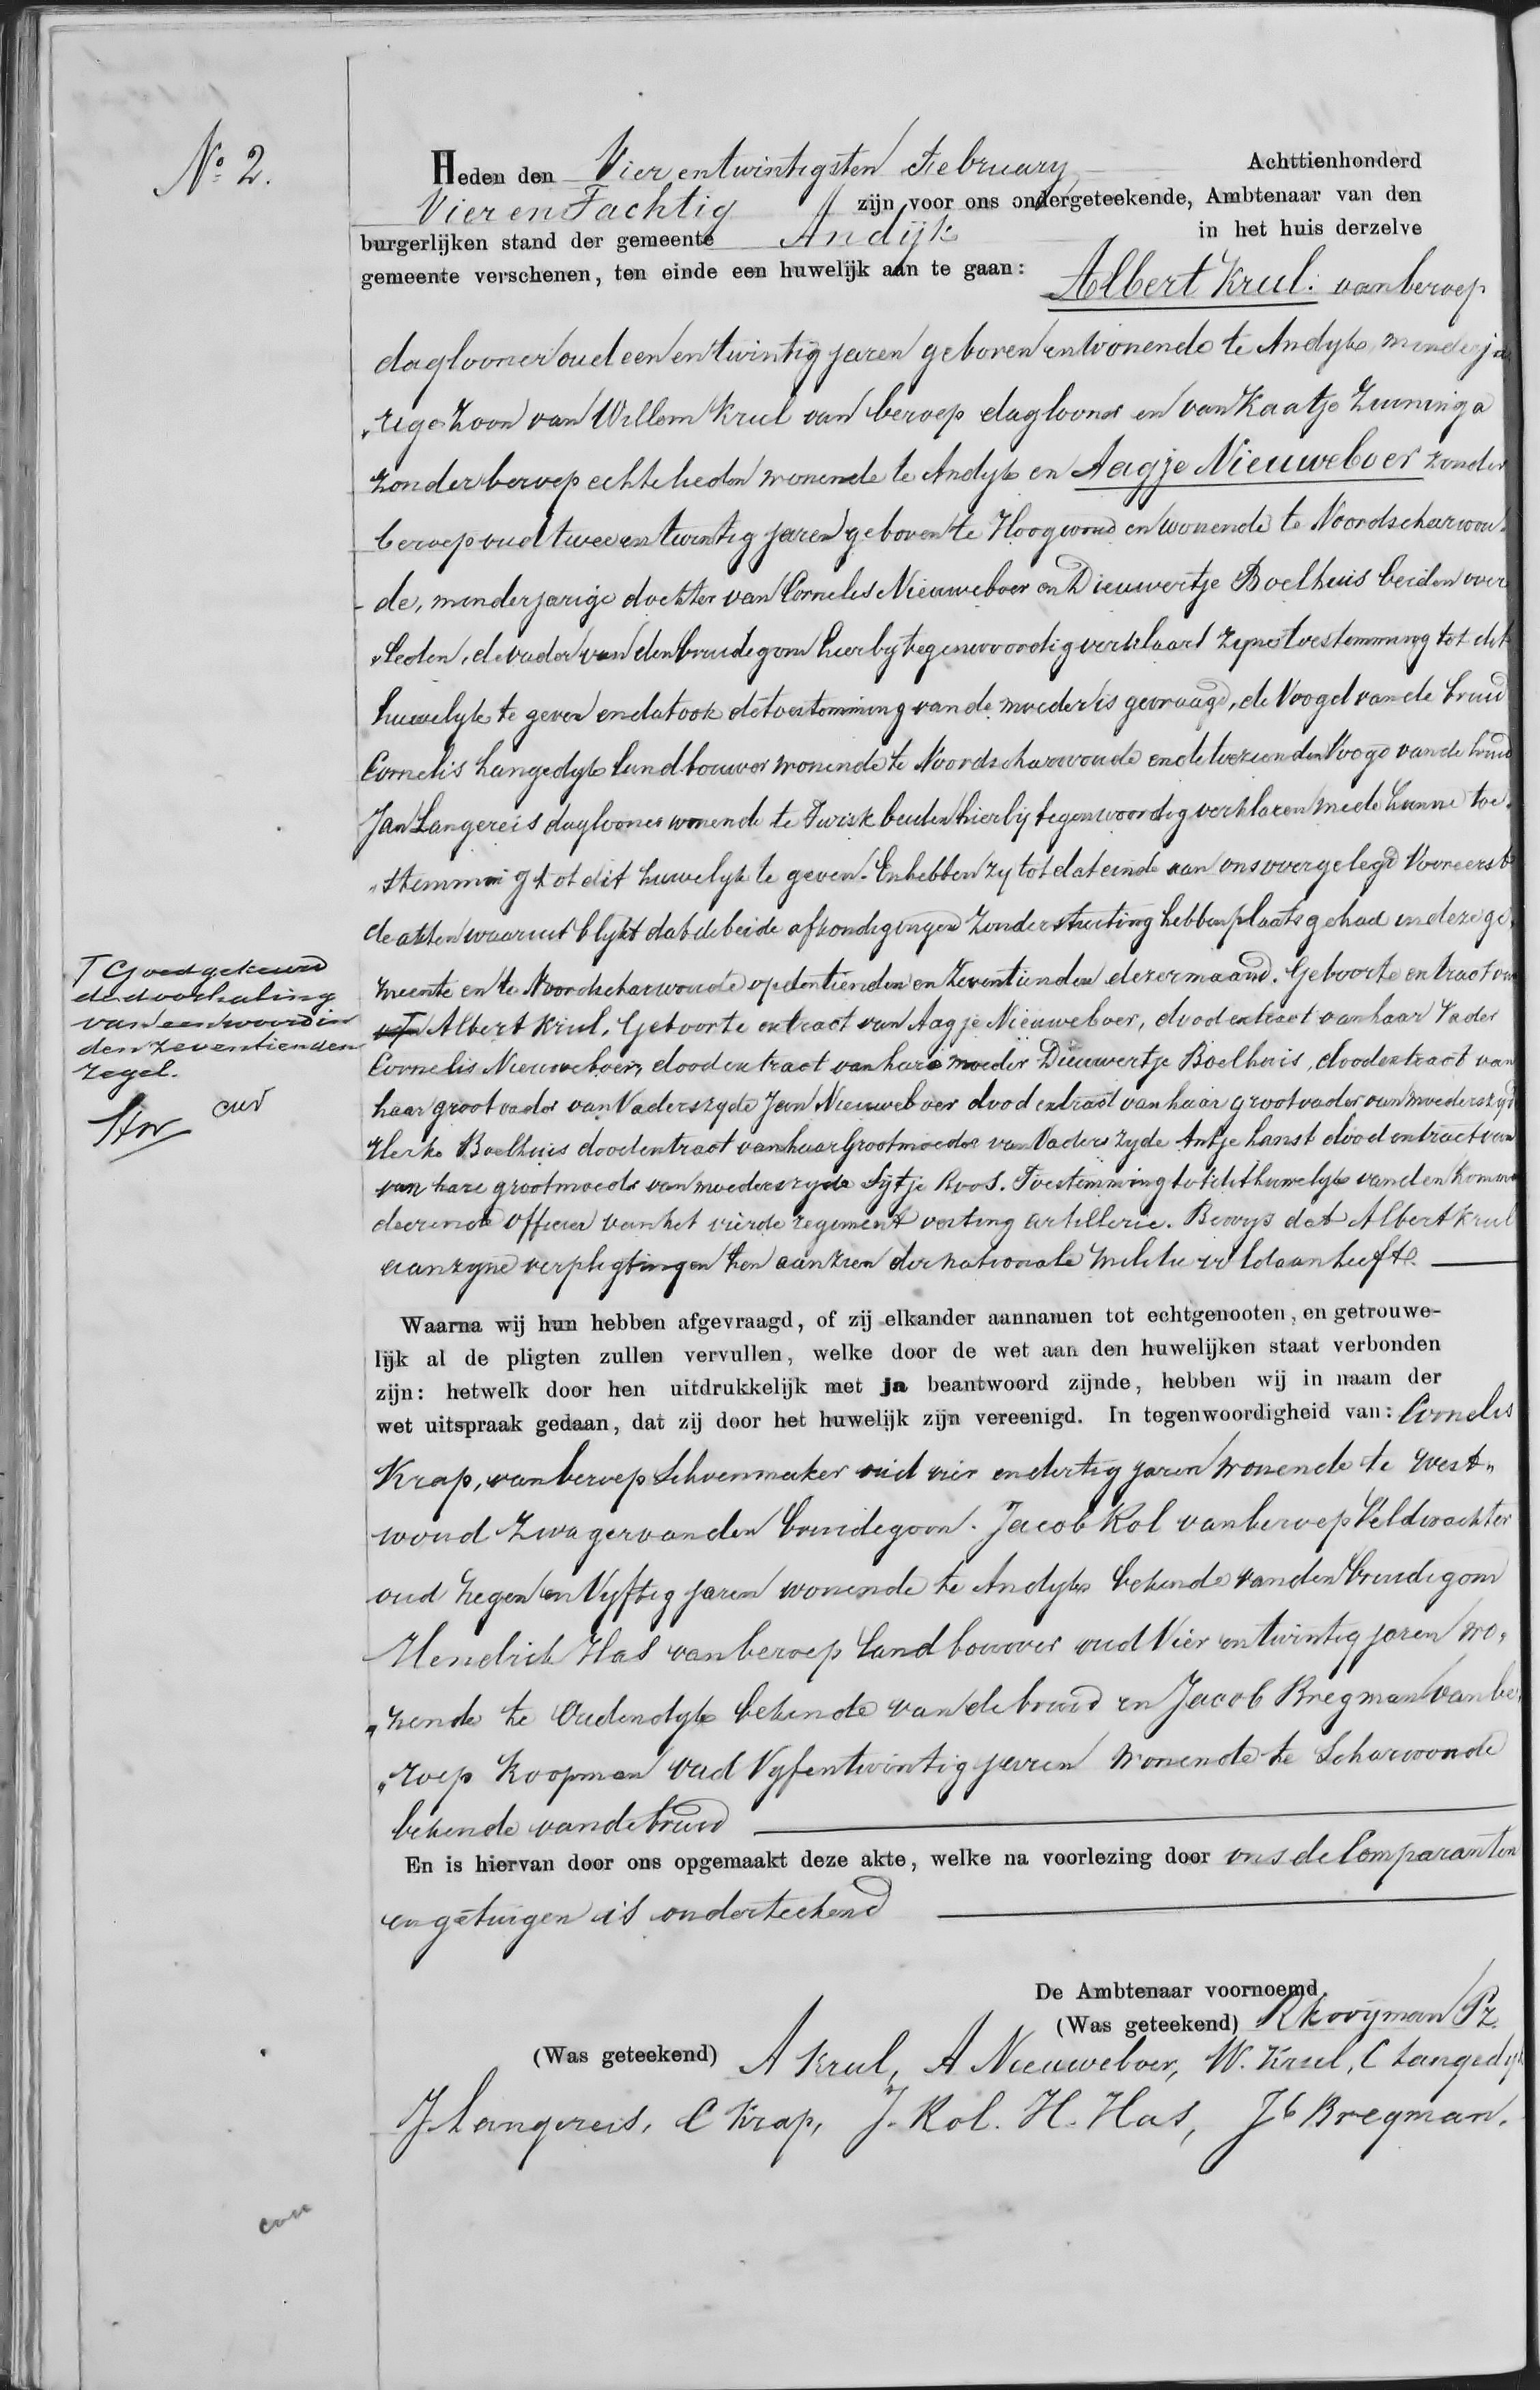 No. 2.
Heden den Vier en twintigsten February Achttienhonderd
Vier en Tachtig zijn voor ons ondergeteekende, Ambtenaar van den
burgerlijken stand der gemeente Andijk in het huis derzelve
gemeente verschenen, ten einde een huwelijk aan te gaan: Albert Krul. van beroep
daglooner oud een en twintig jaren geboren en wonende te Andyk, minderja
„rige Zoon van Willem Krul van beroep daglooner en van Kaatje Zuuninga
zonder beroep echtelieden wonende te Andyk en Aagje Nieuweboer zonder
beroep oud twee en twintig jaren geboren te Hoogwoud en wonende te Noordscharwou„
de, minderjarige dochter van Cornelis Nieuweboer en Dieuwertje Boelhuis beiden over
„leden, de vader van den bruidegom hierby tegenwoordig verklaard zyne toestemming tot dit
huwelyk te geven en dat ook de toestemming van de moeder is gevraagd, de Voogd van de bruid
Cornelis Langedyk landbouwer wonende te Noordscharwoude en de toeziende Voogd van de bruid
Jan Langereis daglooner wonende te Twisk beiden hierbij tegenwoordig verklaren mede hunne toe„
„stemming tot dit huwelyk te geven. En hebben zy tot dat einde aan ons overgelegd Vooreerst
de akten waaruit blykt dat de beide afkondigingen zonder stuiting hebben plaats gehad in deze ge„
meente en te Noordscharwoude op den tienden en zeventienden dezer maand. Geboorte extract van
Albert Krul, Geboorte extract van Aagje Nieuweboer, dood extract van haar Vader
Cornelis Nieuweboer, dood extract van hare moeder Dieuwertje Boelhuis, dood extract van
haar grootvader van Vaderszyde Jan Nieuweboer dood extract van haar grootvader van moederszyde
Boelhuis dood extract van haar Grootmoeder van Vaders zyde Antje dood extract van
van hare grootmoeder van moederszyde Sytje Roos. Toestemming tot dit huwelyk van den Komman
deerende officier van het vierde regiment vesting artillerie. Bewys dat Albert Krul
aan zyne verpligtingen ten aanzien der nationale militie voldaan heeft.
T Goedgekeurd
de doorhaling
van een woord in
den zeventienden
regel.
Waarna wij hun hebben afgevraagd, of zij elkander aannamen tot echtgenooten, en getrouwe-
lijk al de pligten zullen vervullen, welke door de wet aan den huwelijken staat verbonden
zijn: hetwelk door hen uitdrukkelijk met ja beantwoord zijnde, hebben wij in naam der
wet uitspraak gedaan, dat zij door het huwelijk zijn vereenigd. In tegenwoordigheid van: Cornelis
Krap, van beroep Schoenmaker oud vier en dertig jaren wonende te West„
woud Zwager van den bruidegom. Jacob Kol van beroep Veldwachter
oud Negen en Vyftig jaren wonende te Andyk bekende van den bruidegom
Hendrik Has van beroep Landbouwer oud Vier en twintig jaren wo„
„nende te Oudendyk bekende van de bruid en Jacob Bregman van be„
„roep Koopman oud Vyf en twintig jaren wonende te Scharwoude
bekende van de bruid
En is hiervan door ons opgemaakt deze akte, welke na voorlezing door ons de Comparanten
en getuigen is onderteekend
De Ambtenaar voornoemd
(Was geteekend) R Kooijman Pz.
(Was geteekend) A Krul, A Nieuweboer, W. Krul, C Langedyk
J Langereis, C Krap, J. Kol. H. Has, Jb Bregman.